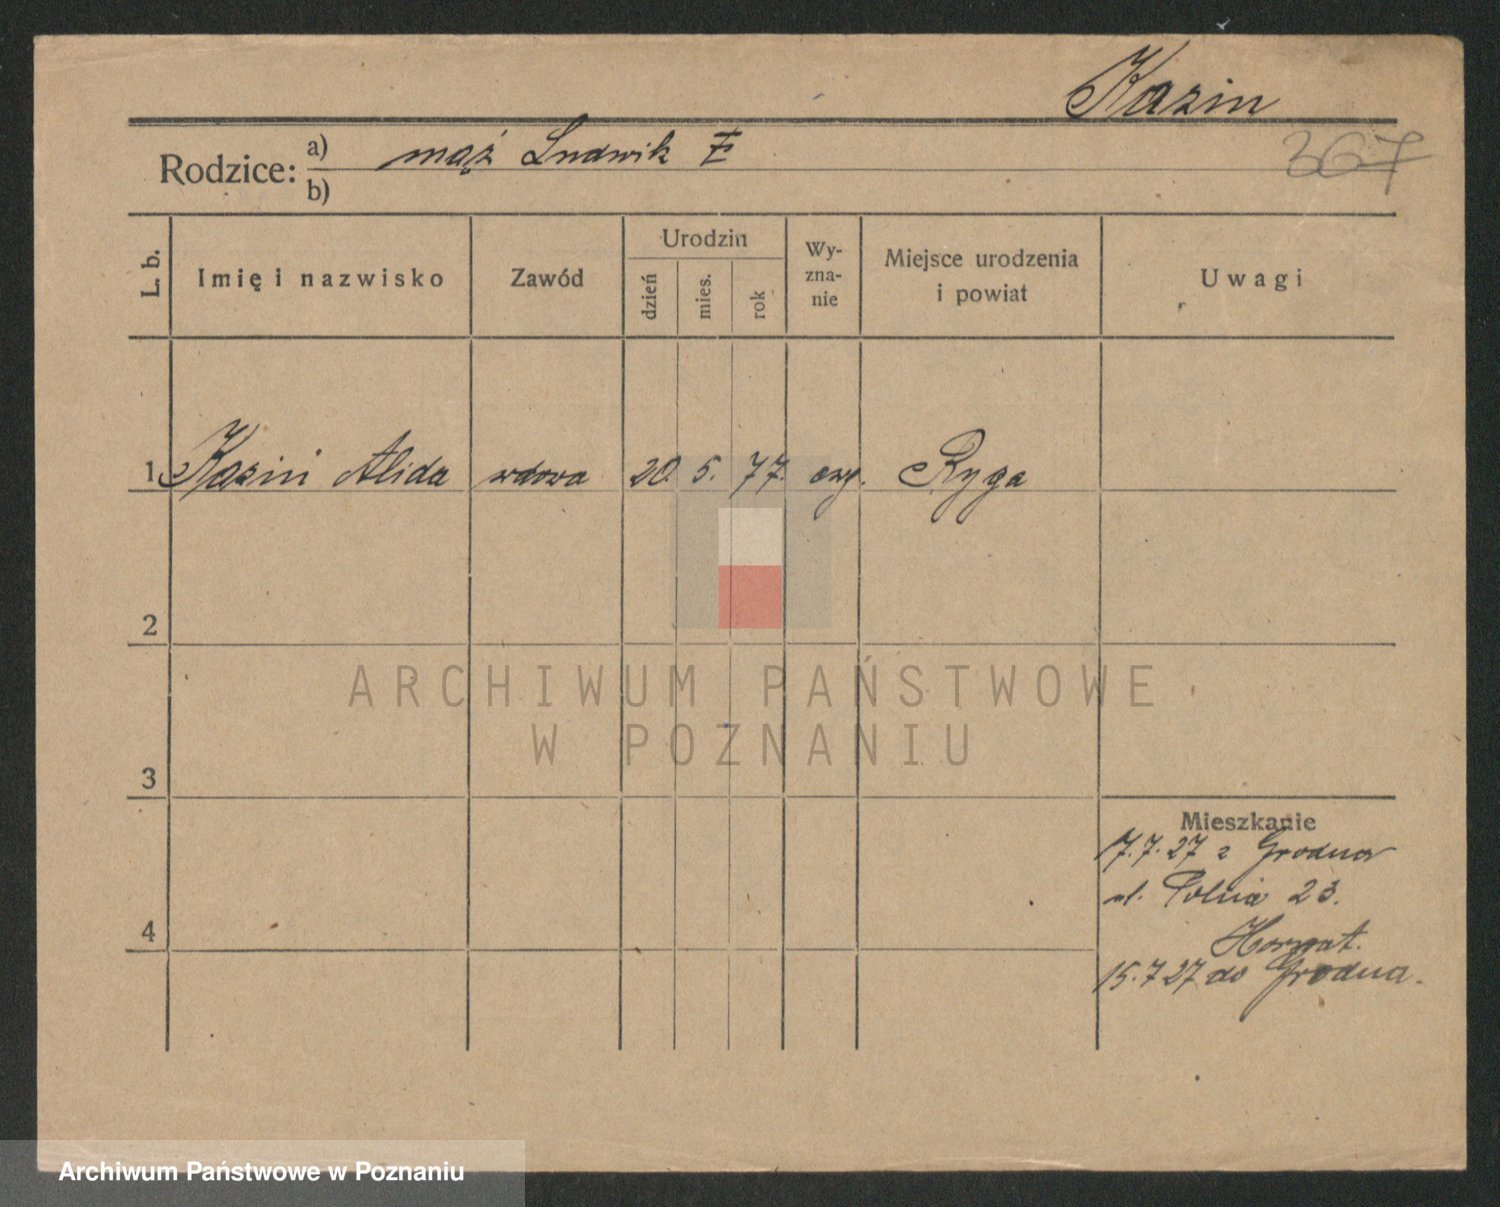 Kazin
367
Rodzice: a) mąż Ludwik
b)
L. b. Imię i nazwisko Zawód Urodzin dzień mies. rok Wy-zna-nie Miejsce urodzenia i powiat Uwagi
1 Kazin Alida wdowa 20. 5. 77. ewg. Ryga
2
ARCHIWUM PAŃSTWOWE
W POZNANIU
3
Mieszkanie
7.7.27 z Grodna
ul. Polna 23.
4
15.7 27 do Grodna.
Archiwum Państwowe w Poznaniu